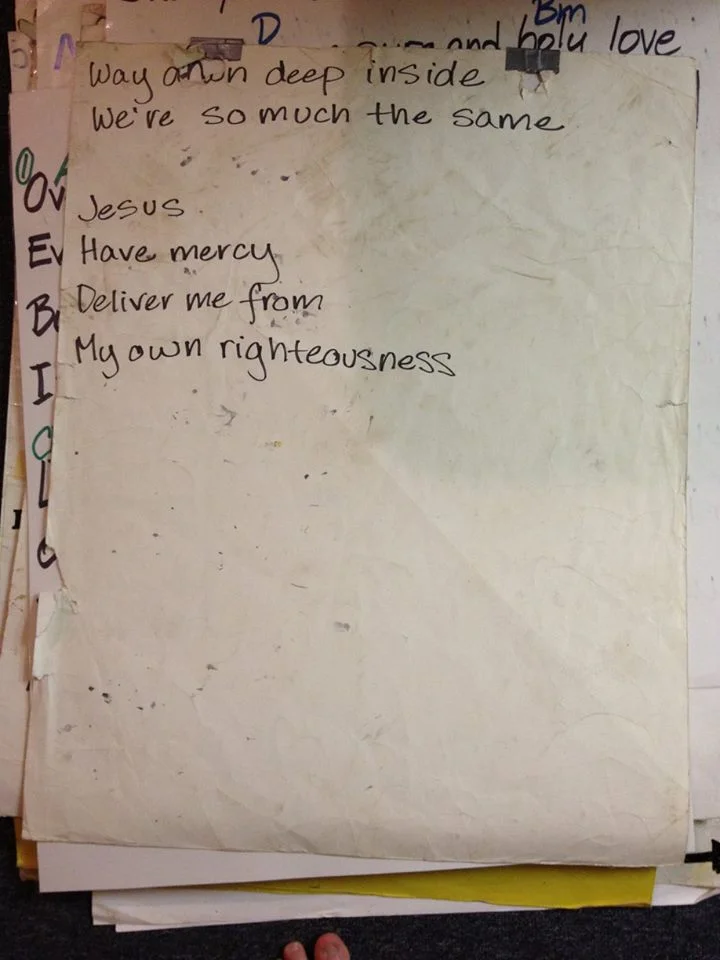 Bm
D and holy love
Way down deep inside
We're so much the same
Jesus
Have mercy
Deliver me from
My own righteousness